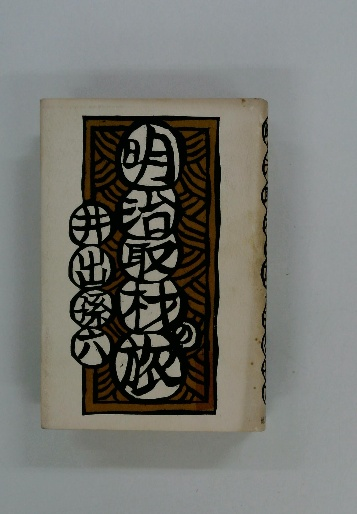 明治取材の旅
井出孫六